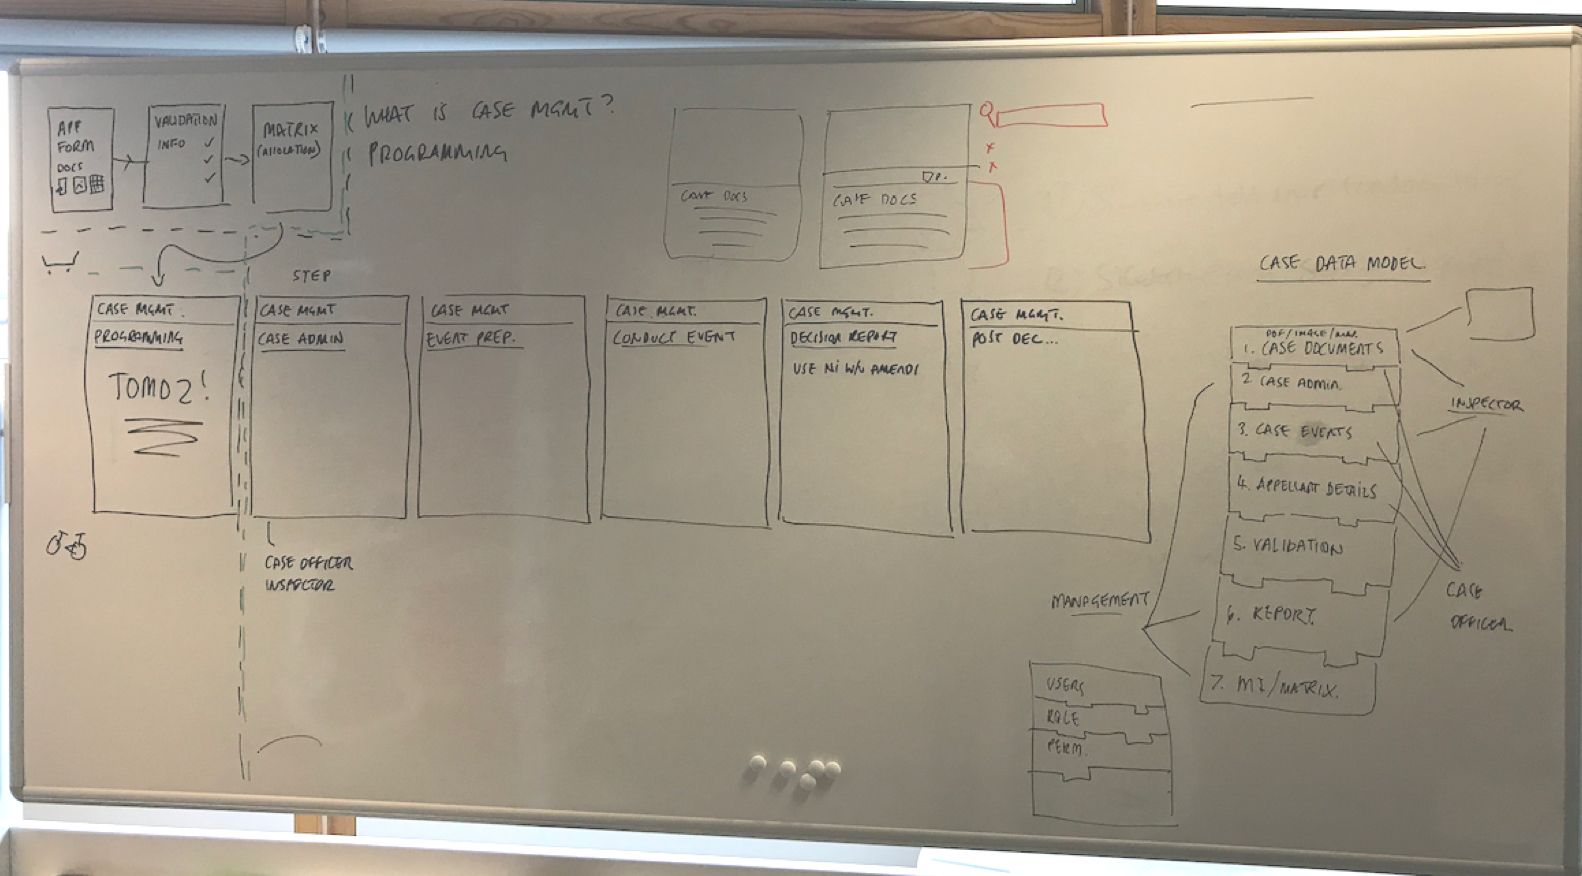 APP
FORM
DOCS
VALIDATION
INFO
MATRIX
(ALLOCATION)
WHAT IS CASE MGMT?
PROGRAMMING
CASE DOCS
CASE DOCS
STEP
CASE MGMT.
PROGRAMMING
TOMO2!
CASE MGMT
CASE ADMIN
CASE OFFICER
INSPECTOR
CASE MGMT
EVENT PREP.
CASE MGMT.
CONDUCT EVENT
CASE MGMT.
DECISION REPORT
USE Ni
CASE MGMT.
POST DEC...
CASE DATA MODEL.
PDF/IMAGE/
1. CASE DOCUMENTS
2 CASE ADMIN.
3. CASE EVENTS
4. APPELLANT DETAILS
5. VALIDATION
6. REPORT.
7. MI/MATRIX.
INSPECTOR
CASE
OFFICER
MANAGEMENT
USERS
ROLE
PERM.